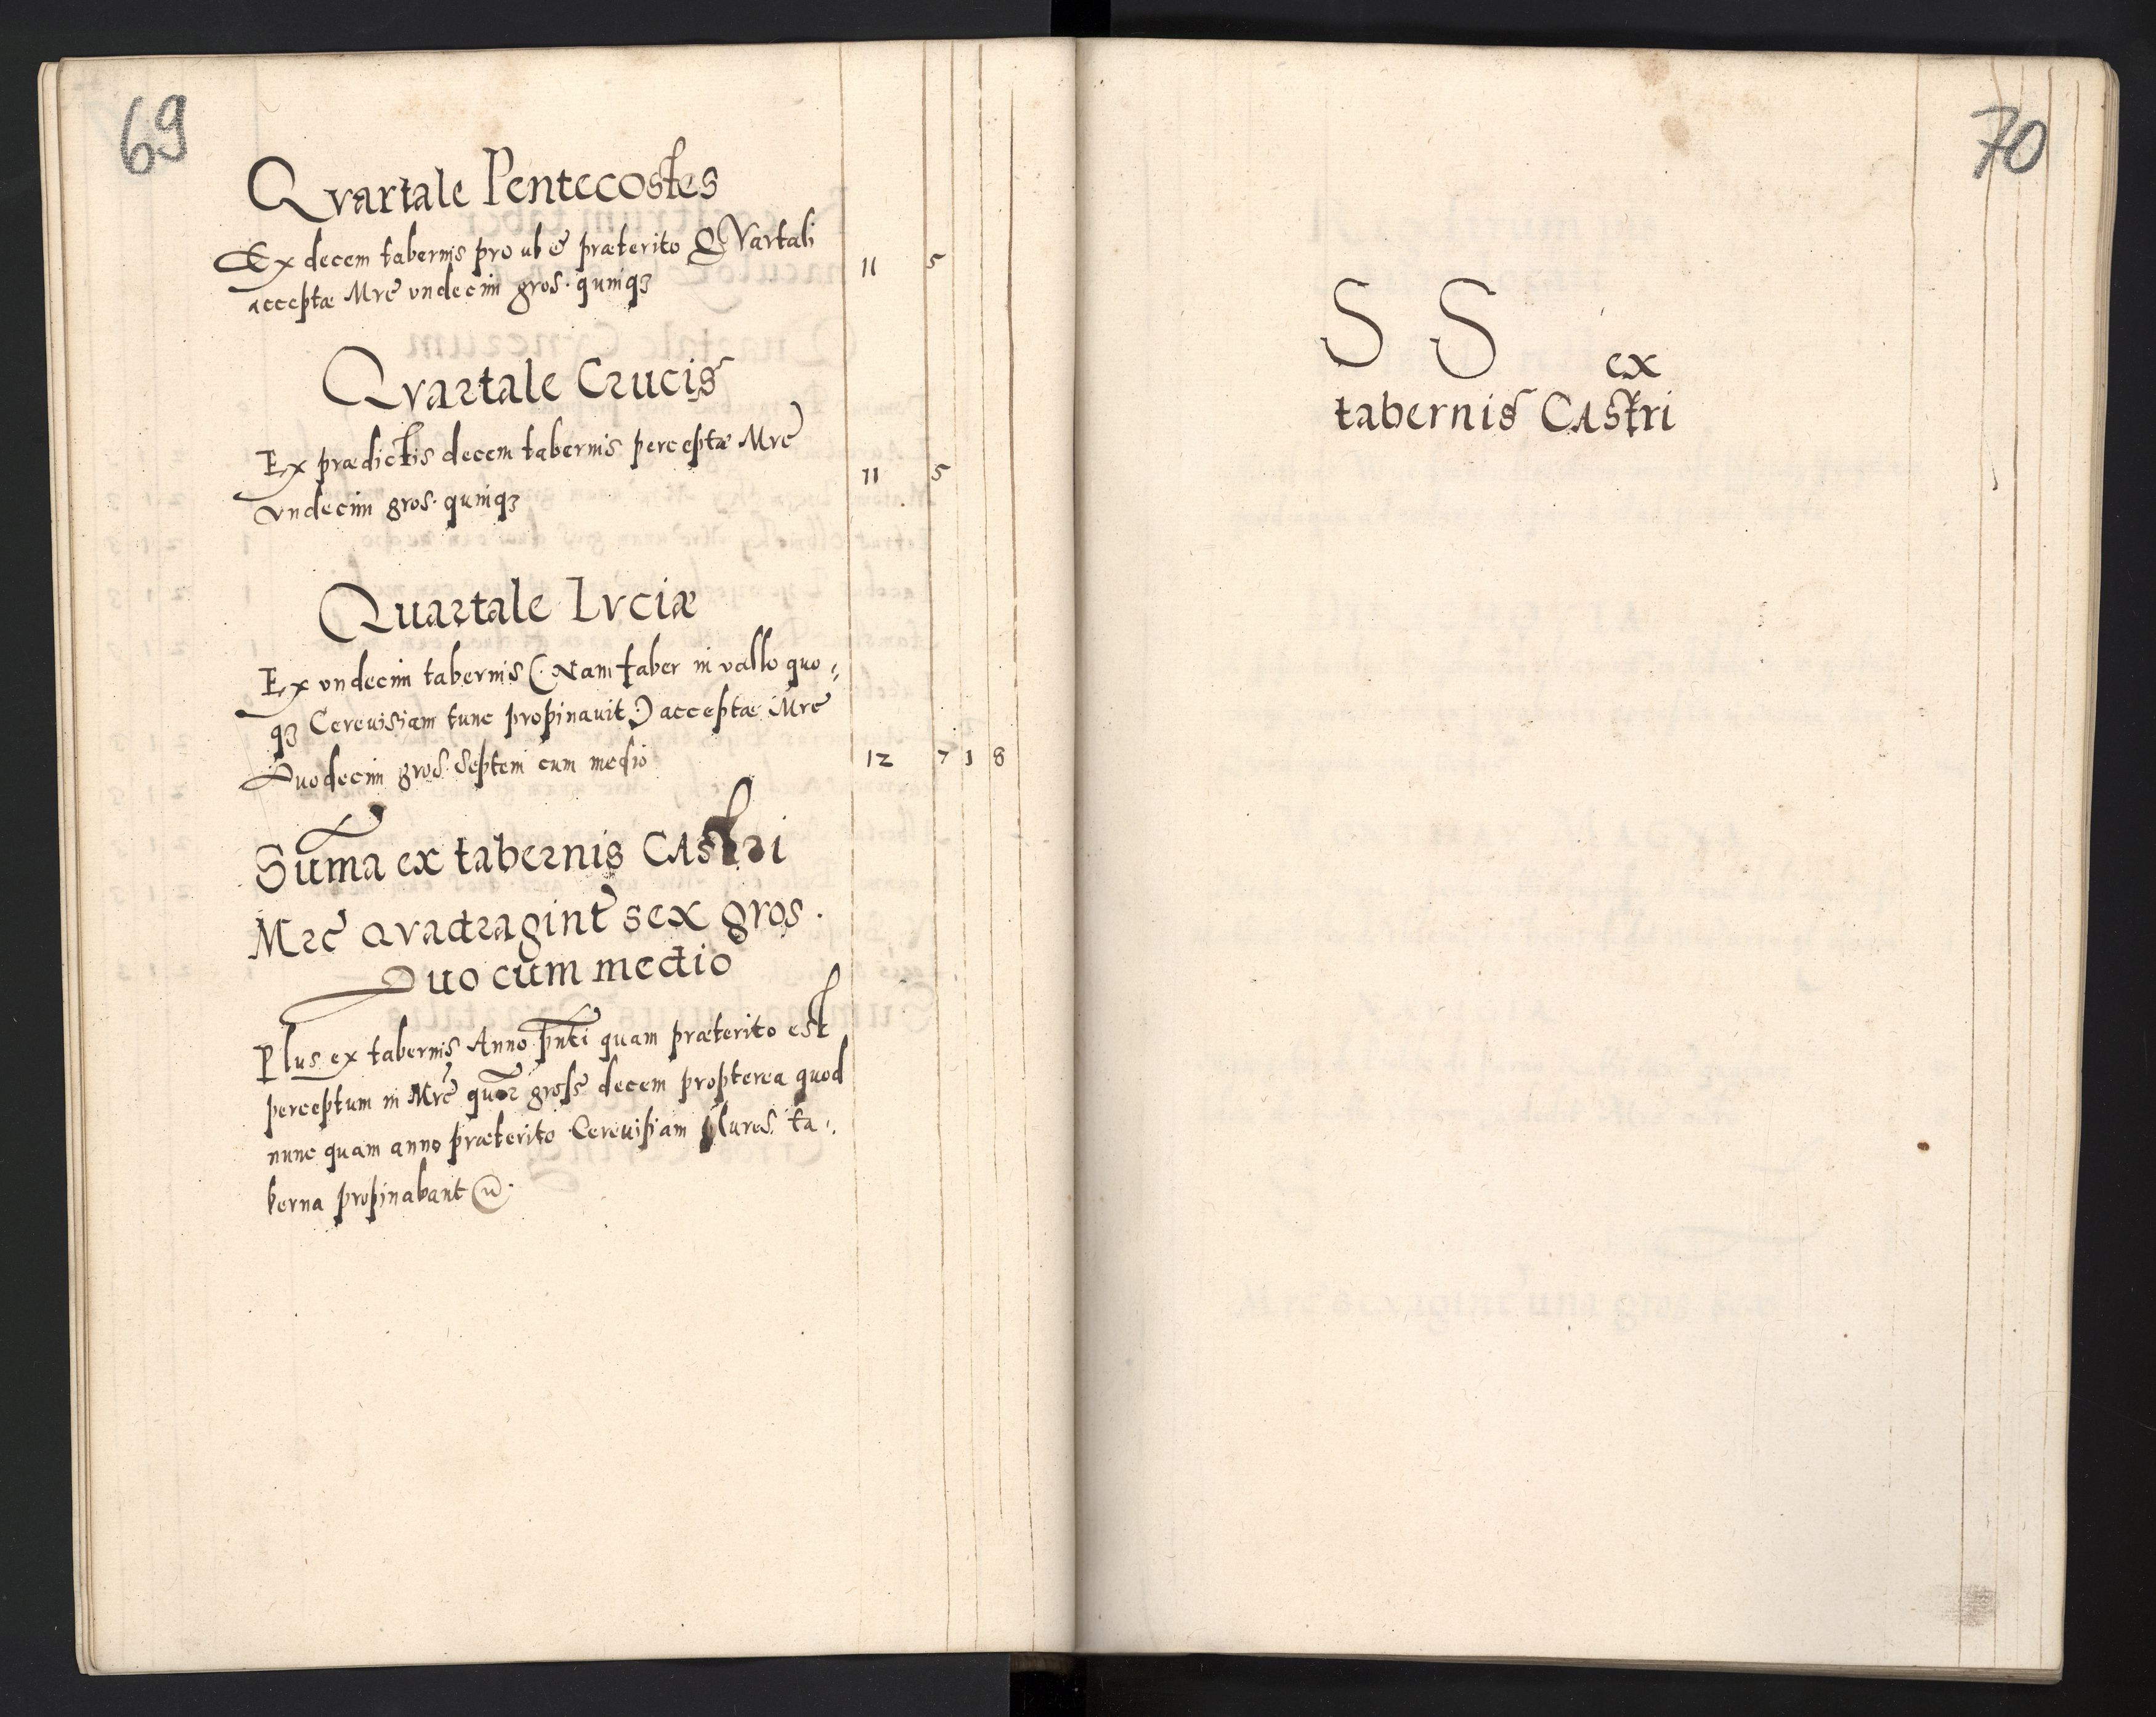 69
Qvartale Pentecostes
Ex decem tabernis pro ut et præterito QVartali 11 5
acceptæ Mrc̃ vndecim gros. quinqꝫ
Qvartale Crucis
Ex prædictis decem tabernis perceptæ Mrc̃
vndecim gros. quinqꝫ 11 5
Quartale Lvciæ
Ex vndecim tabernis (: Nam faber in vallo quo⸗
qꝫ Cereuisiam tunc propinauit :) acceptæ Mrc̃
Duodecim gros. septem cum medio 12 7 1 8
Sum̃a ex tabernis CAstri
Mrc̃ qvadragint̃ sex gros.
Duo cum medio
Plus ex tabernis Anno p̃nti quam præterito est
perceptum in Mrc̃ quõr gross̃ decem propterea quod
nunc quam anno præterito Cereuisiam plures ta⸗
berna propinabant
70
S S ex
tabernis CAstri